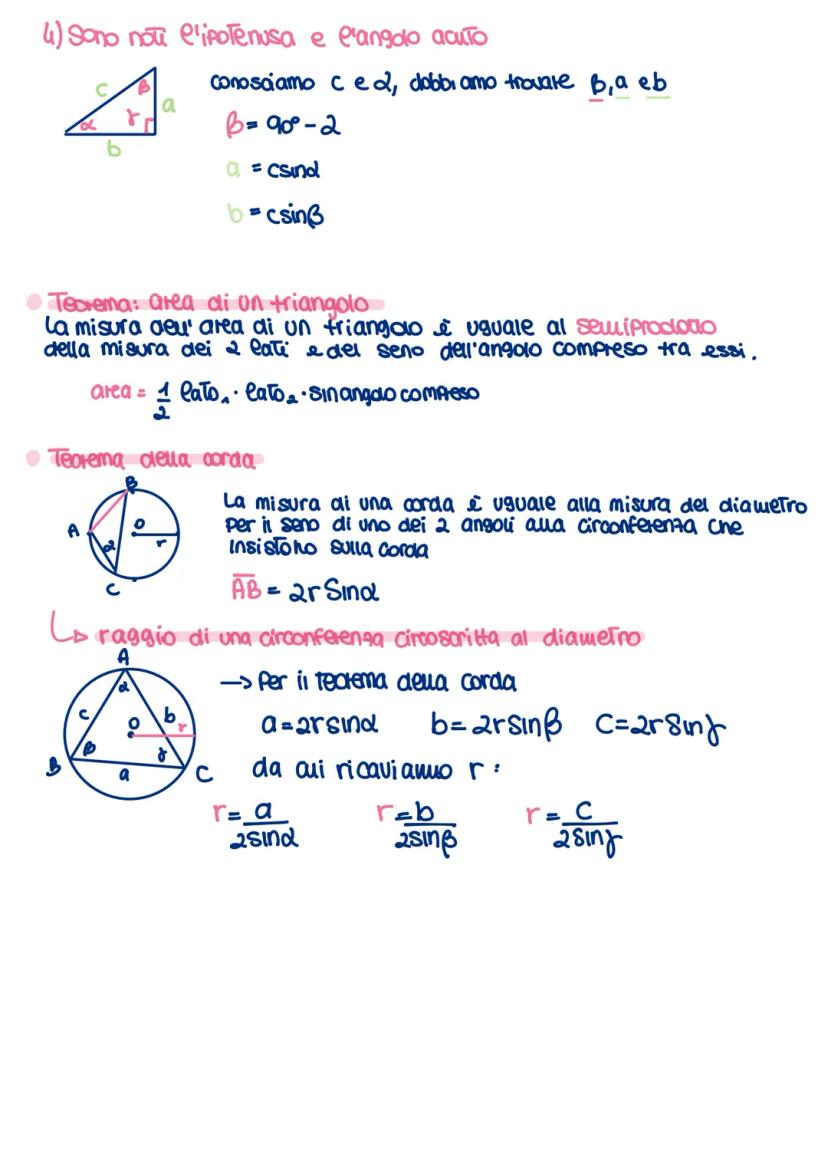 4) Sono noti l'ipotenusa e l'angolo acuto
c β a
α γ
b
conosciamo c e α, dobbiamo trovare β, a e b
β = 90° - α
a = csinα
b = csinβ
Teorema: area di un triangolo
La misura dell'area di un triangolo è uguale al semiprodotto
della misura dei 2 lati e del seno dell'angolo compreso tra essi.
area = 1/2 lato₁ · lato₂ · sin angolo compreso
Teorema della corda
B
A O
α r
C
La misura di una corda è uguale alla misura del diametro
per il seno di uno dei 2 angoli alla circonferenza che
insistono sulla corda
AB = 2r Sinα
raggio di una circonferenza circoscritta al diametro
A
α
c O b r
B β γ C
a
→ Per il teorema della corda
a = 2rsinα b = 2rsinβ C = 2rSinγ
da cui ricaviamo r :
r = a/2sinα r = b/2sinβ r = C/2Sinγ